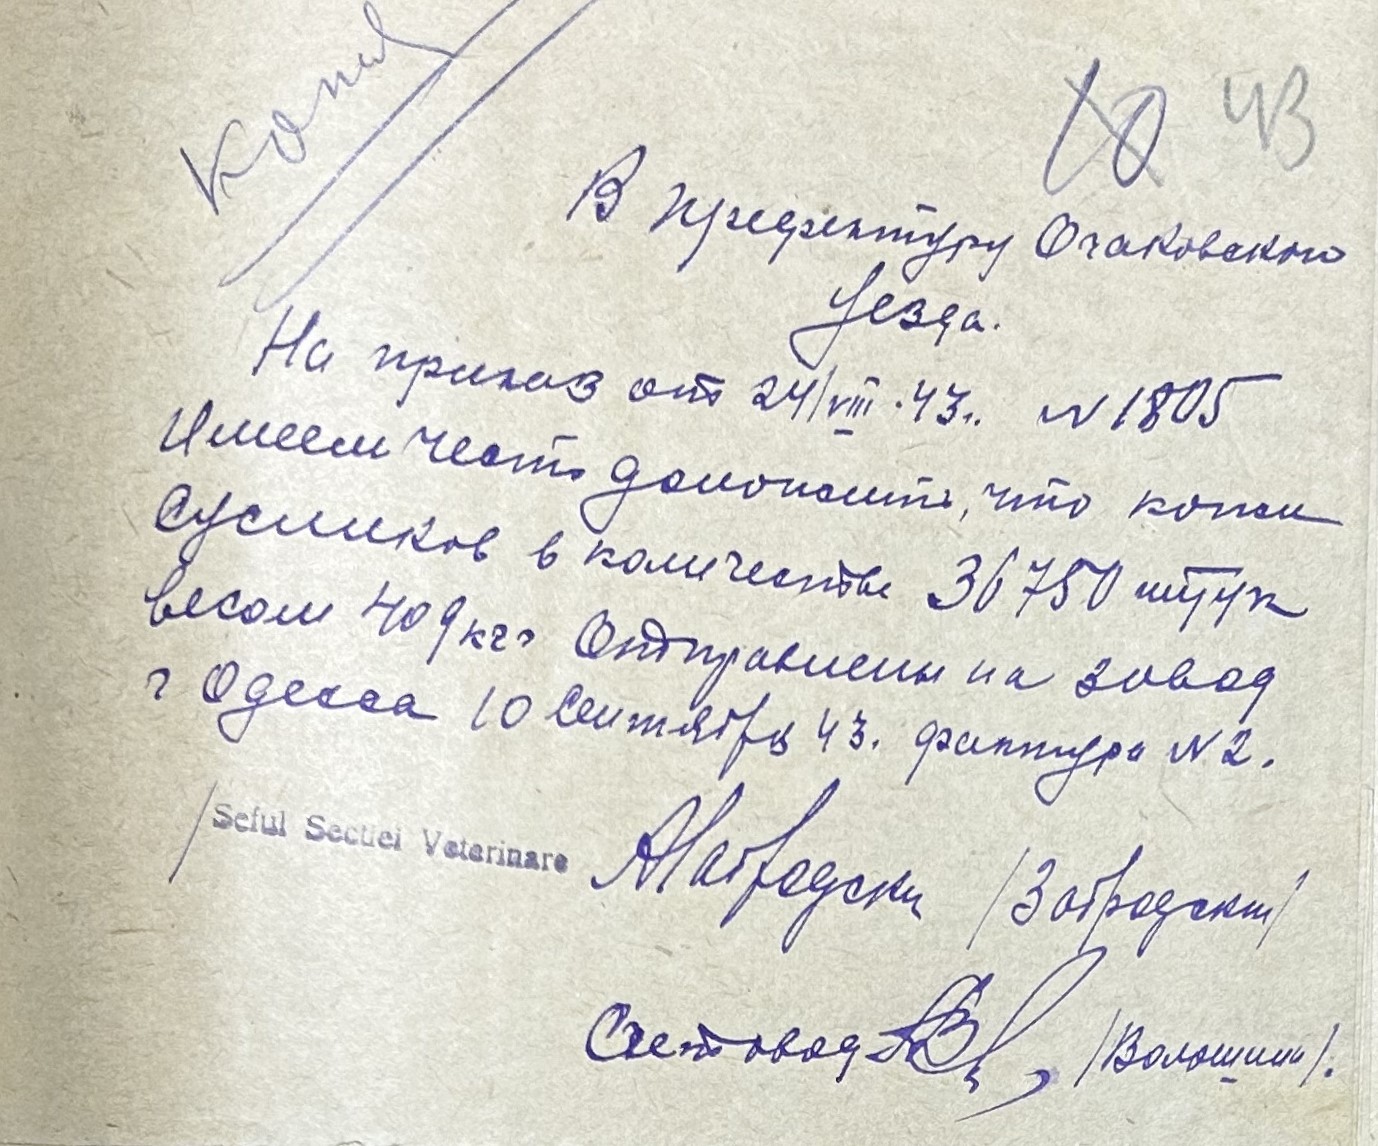 Копия
10 43
В префектуру Очаковского
Уезда.
На приказ от 24/VIII·43г. N 1805
Имеем честь доложить, что кожи
Сусликов в количестве 36750 штук
весом 409 кгр Отправлены на завод
г Одесса 10 Сентября 43. фактура N 2.
/Seful Sectiei Veterinare /Забродский/
Счетовод /Волошин/.